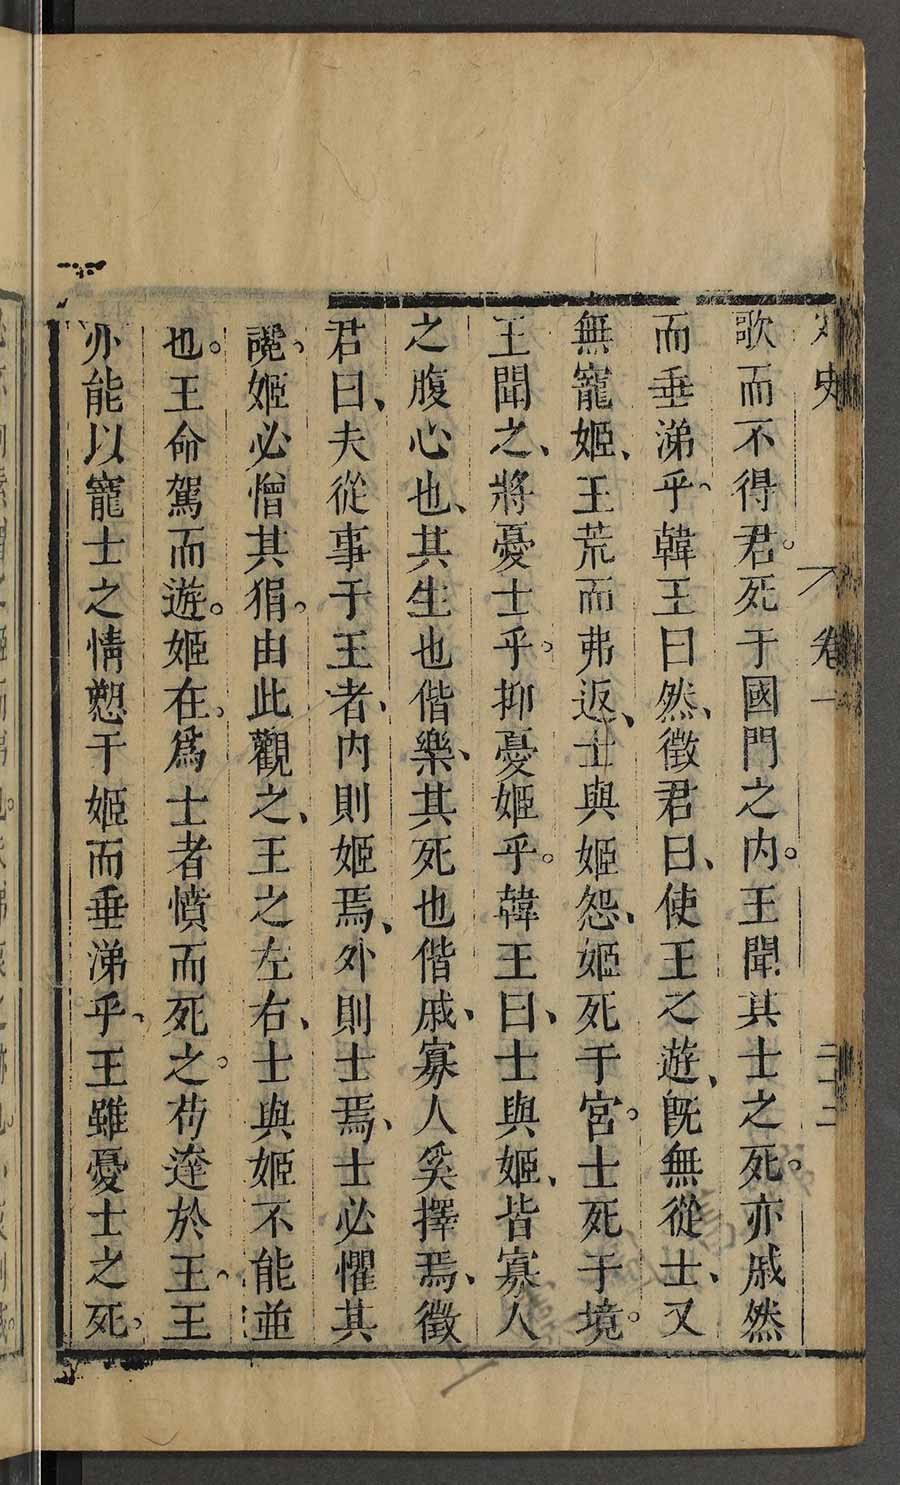 史 卷一 二十二
歌而不得君。死于國門之內。王聞其士之死。亦戚然
而垂涕乎、韓王曰然、徵君曰、使王之遊、旣無從士、又
無寵姬、王荒而弗返、士與姬怨、姬死于宮。士死于境。
王聞之、將憂士乎。抑憂姬乎。韓王曰、士與姬、皆寡人
之腹心也、其生也偕樂、其死也偕戚、寡人奚擇焉、徵
君曰、夫從事于王者、內則姬焉、外則士焉、士必懼其
讒。姬必憎其狷。由此觀之、王之左右、士與姬不能並
也。王命駕而遊。姬在。爲士者憤而死之。苟達於王、王
亦能以寵士之情愬于姬而垂涕乎、王雖憂士之死、